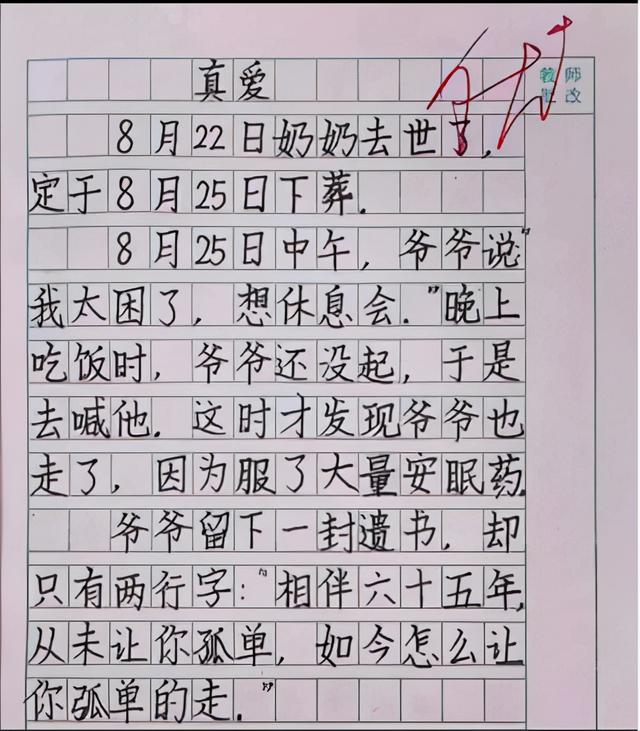 真爱
8月22日奶奶去世了,
定于8月25日下葬.
8月25日中午,爷爷说"
我太困了,想休息会."晚上
吃饭时,爷爷还没起,于是
去喊他.这时才发现爷爷也
走了,因为服了大量安眠药.
爷爷留下一封遗书,却
只有两行字:"相伴六十五年,
从未让你孤单,如今怎么让
你孤单的走."